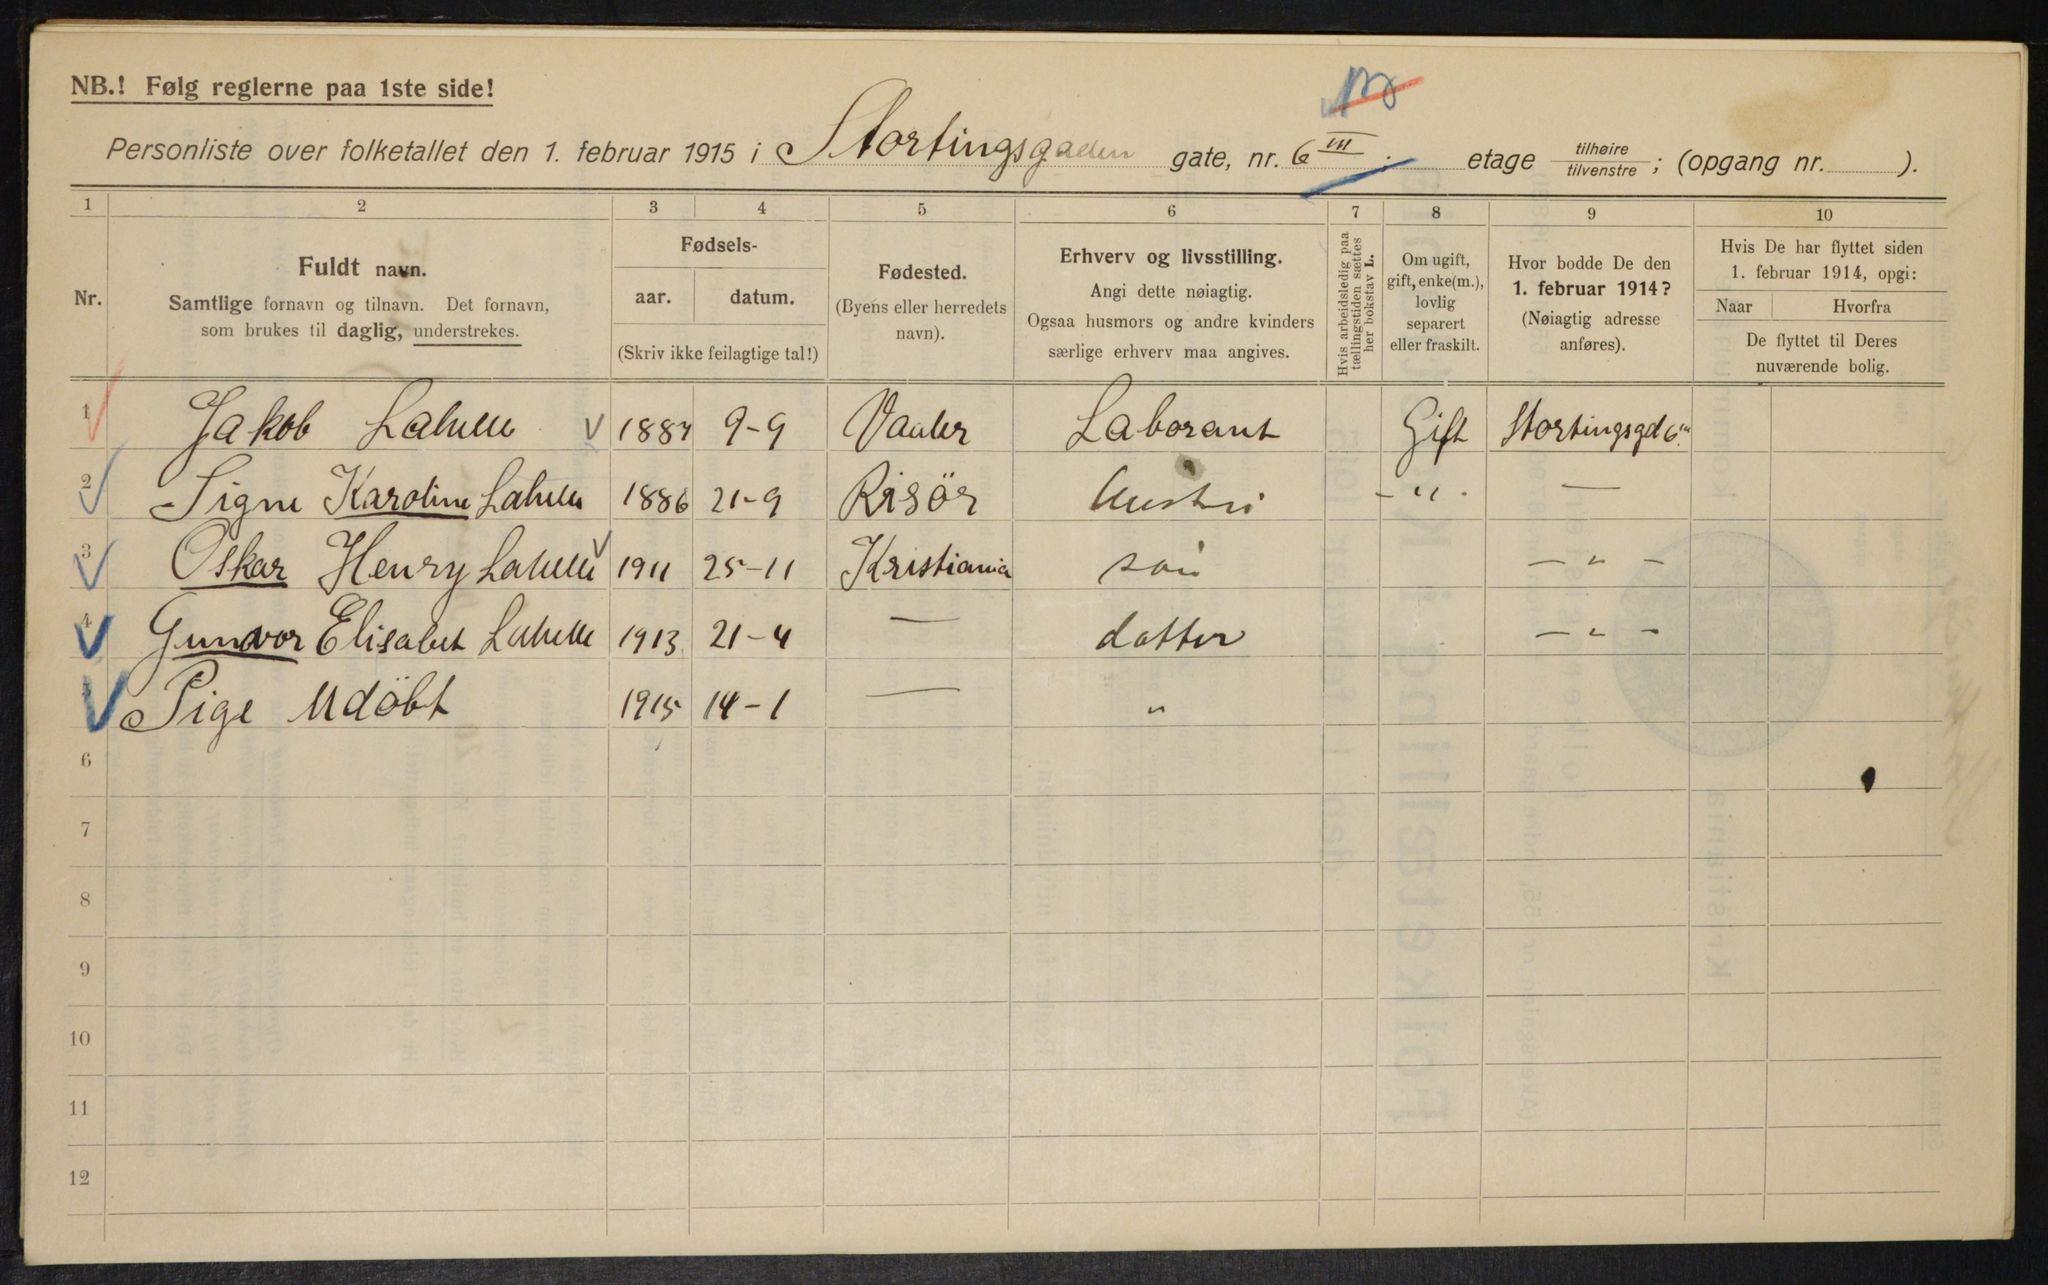 NB.! Følg reglerne paa 1ste side!
Personliste over folketallet den 1. februar 1915 i Stortingsgaden gate, nr. 6 III etage tilhøire / tilvenstre ; (opgang nr. ).
1 2 3 4 5 6 7 8 9 10
Nr.
Fuldt navn.
Samtlige fornavn og tilnavn. Det fornavn,
som brukes til daglig, understrekes.
Fødsels-
aar. datum.
(Skriv ikke feilagtige tal!)
Fødested.
(Byens eller herredets
navn).
Erhverv og livsstilling.
Angi dette nøiagtig.
Ogsaa husmors og andre kvinders
særlige erhverv maa angives.
Hvis arbeidsledig paa
tællingstiden sættes
her bokstav L.
Om ugift,
gift, enke(m.),
lovlig
separert
eller fraskilt.
Hvor bodde De den
1. februar 1914?
(Nøiagtig adresse
anføres).
Hvis De har flyttet siden
1. februar 1914, opgi:
Naar Hvorfra
De flyttet til Deres
nuværende bolig.
1 Jakob 9-9 Vaaler Laborant Gift Stortingsgd 6
2 Signe Karoline 1886 21-9 Risör Hustru - " - —
3 Oskar Henry 1911 25-11 Kristiania sön - " -
4 Gunvor Elisabet 1913 21-4 — datter - " -
5 Pige Udöbt 1915 14-1 — "
6
7
8
9
10
11
12